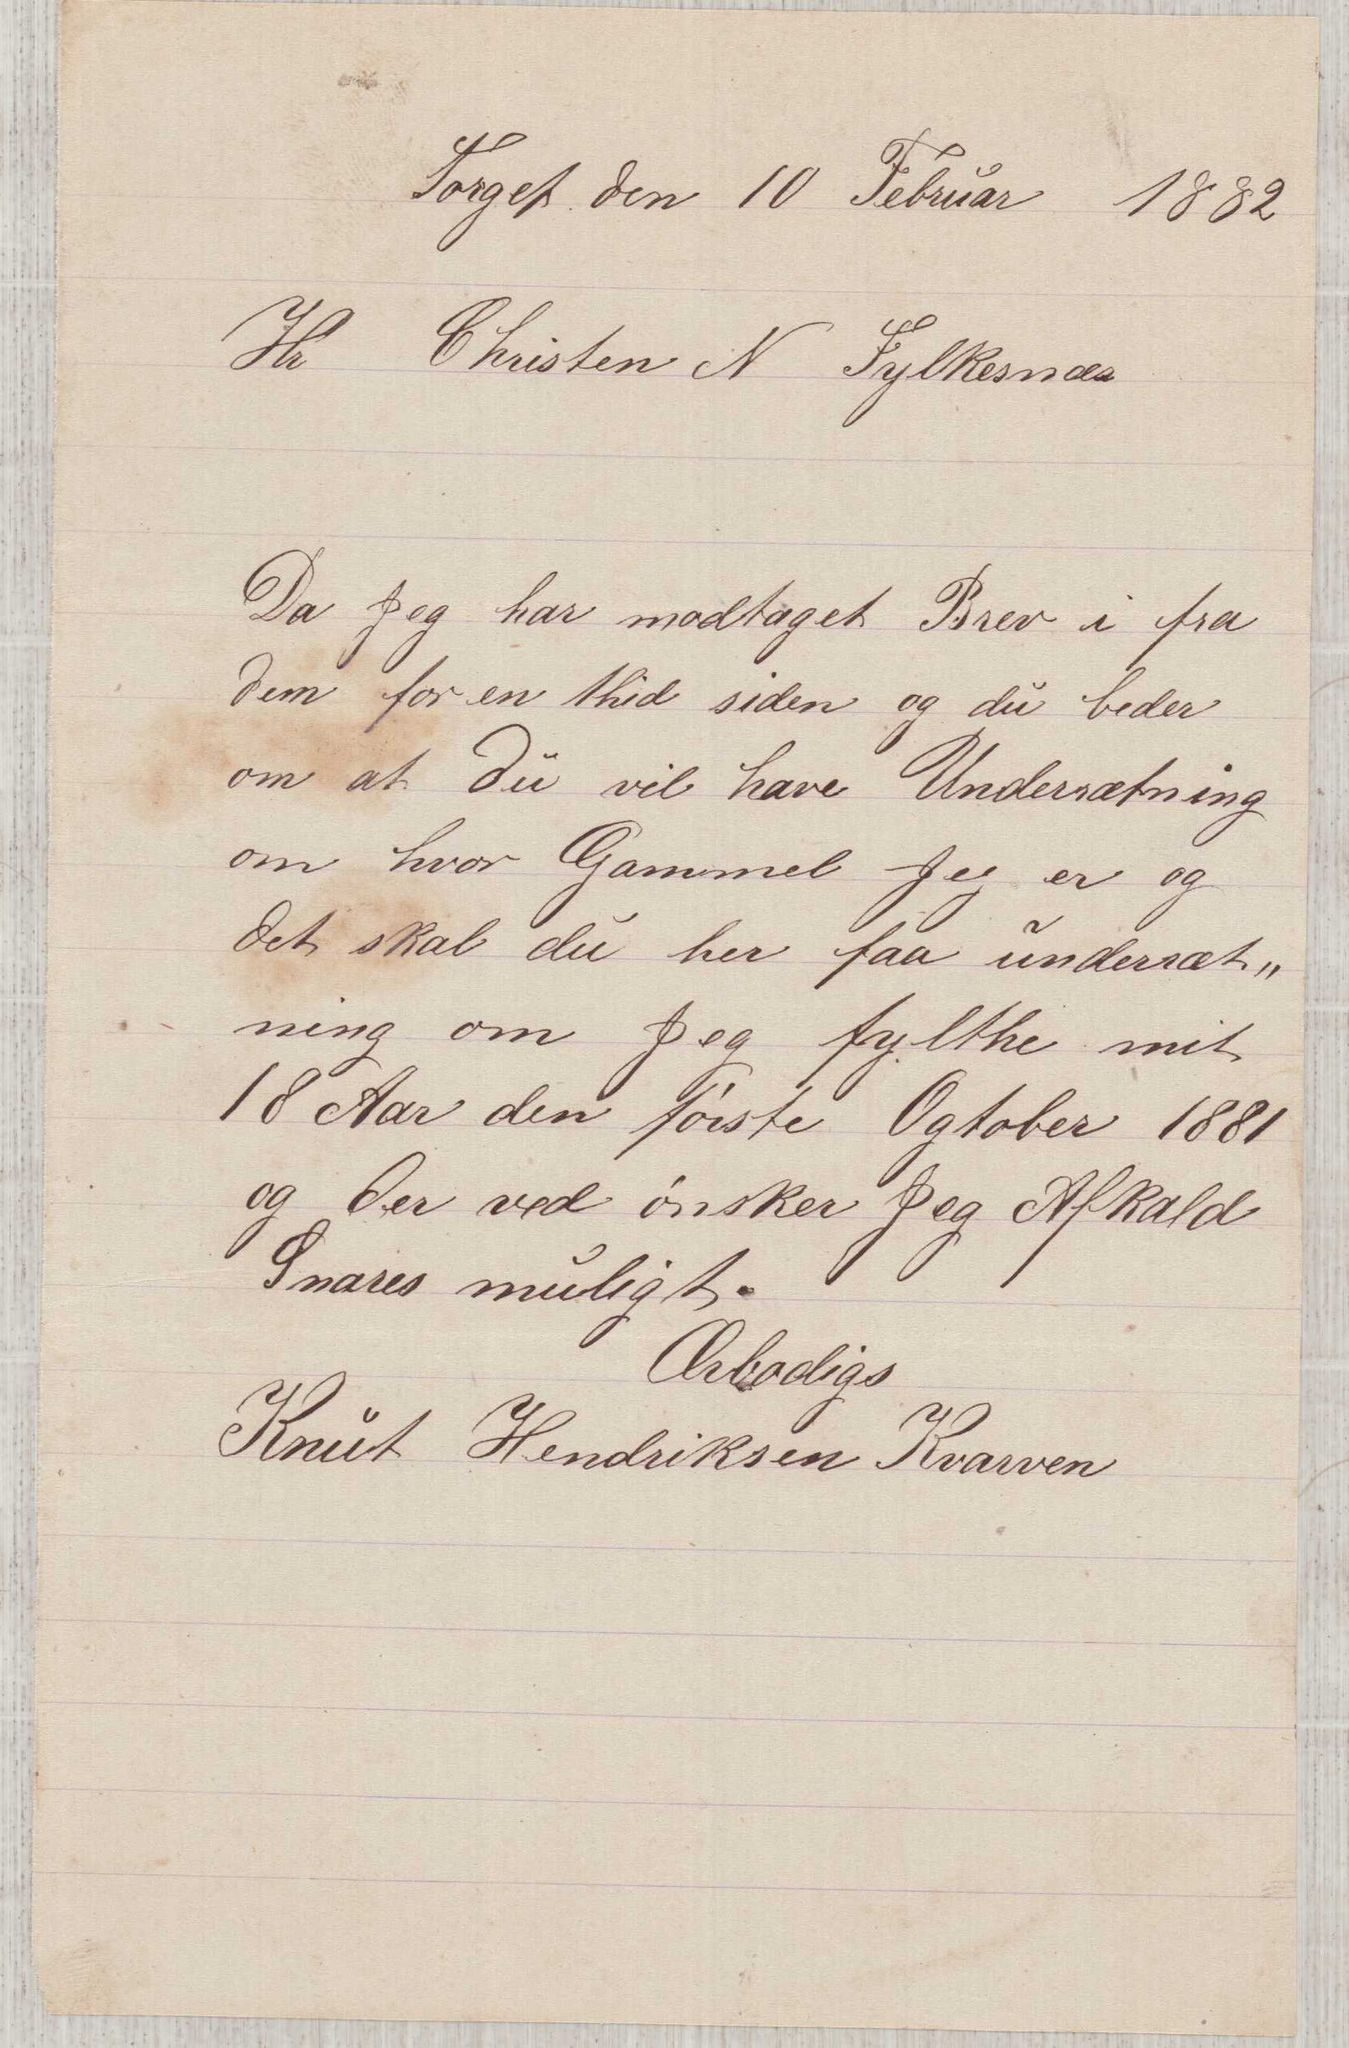 Torget den 10 Februar 1882
Hr Christen N Fylkesnæs
Da Jeg har modtaget Brev i fra
dem for en thid siden og du beder
om at du vil have Undersætning
om hvor Gammel Jeg er og
det skal du her faa undersæt„
ning om Jeg fylthe mit
18 Aar den første Ogtober 1881
og der ved ønsker Jeg Afkald
Snares muligt.
Ærbødigs
Knut Hendriksen Kvarven